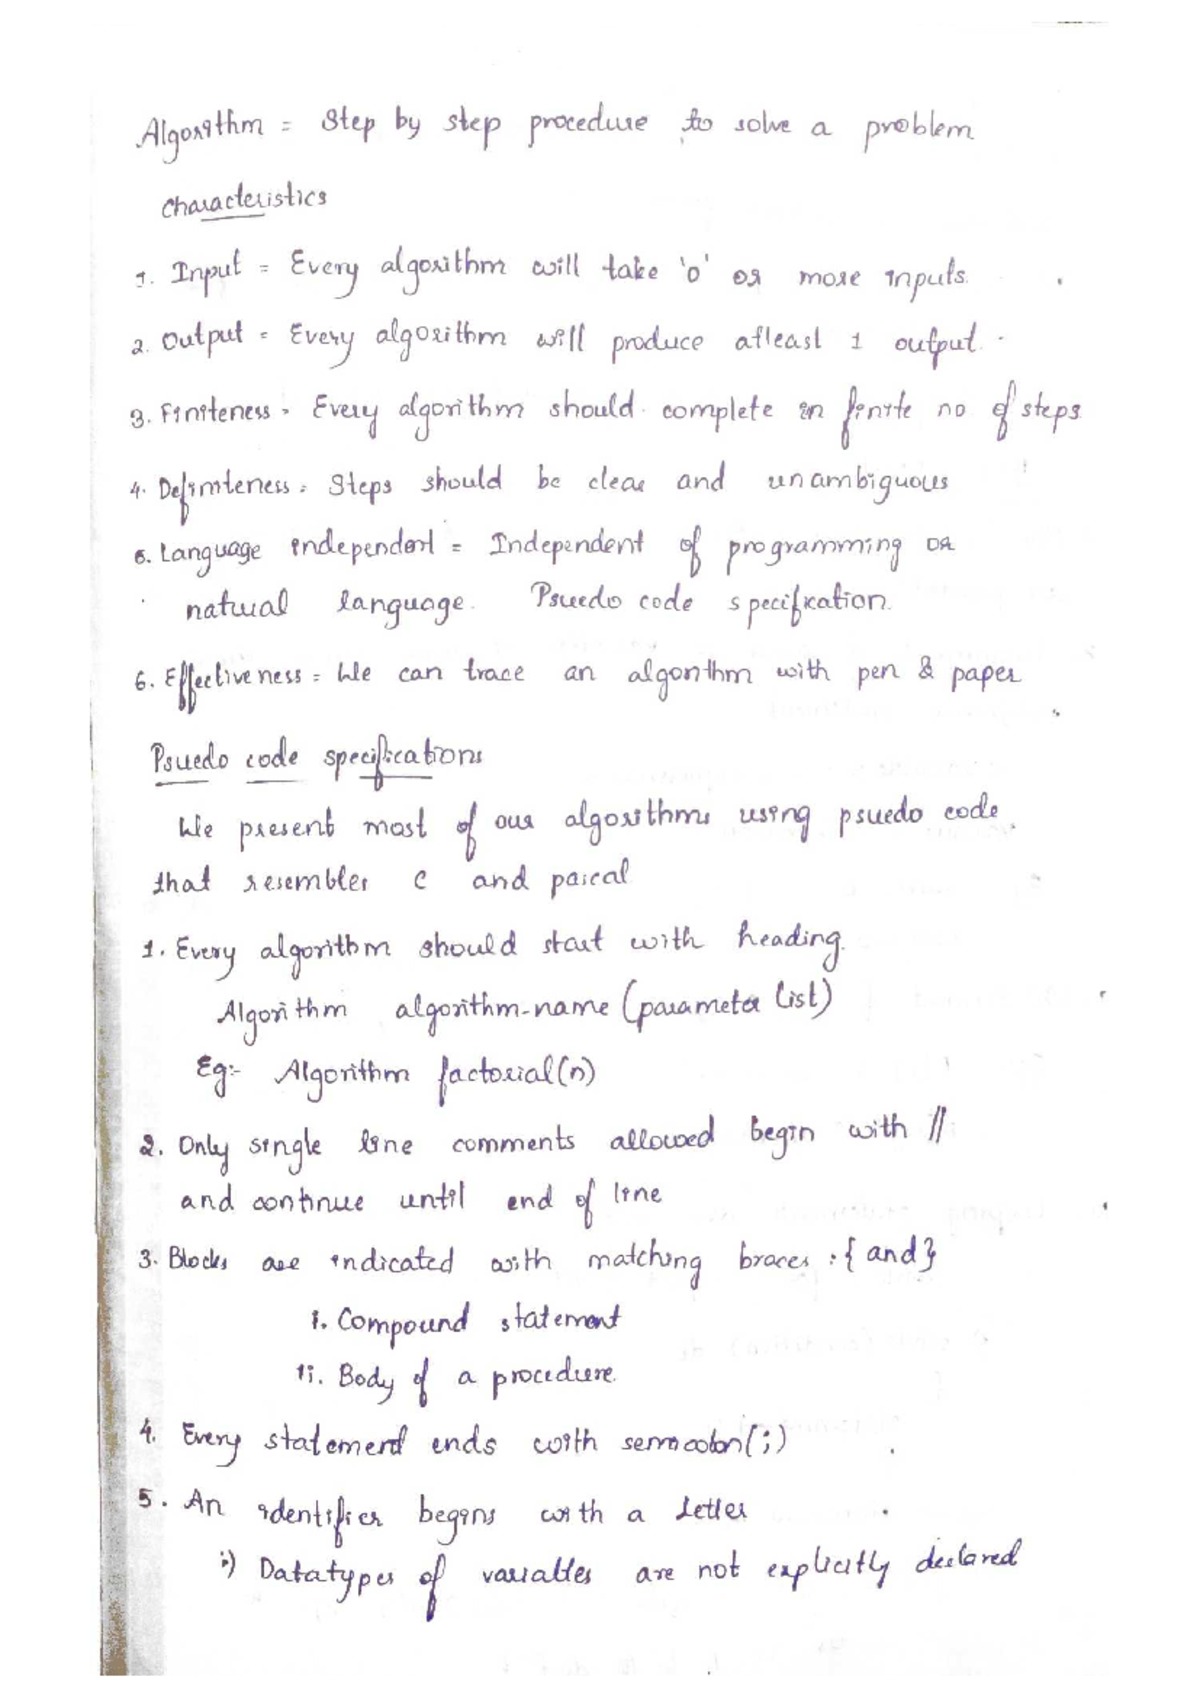 Algorithm = Step by step procedure to solve a problem
Characteristics
1. Input = Every algorithm will take 'o' or more inputs.
2. Output = Every algorithm will produce atleast 1 output.
3. Finiteness = Every algorithm should complete in finite no of steps
4. Definiteness = Steps should be clear and unambiguous
5. Language independent = Independent of programming or
natural language. Psuedo code specification.
6. Effectiveness = We can trace an algorithm with pen & paper
Psuedo code specifications
We present most of our algorithms using psuedo code
that resembles C and pascal
1. Every algorithm should start with heading.
Algorithm algorithm-name (parameter list)
Eg:- Algorithm factorial(n)
2. Only single line comments allowed begin with //
and continue until end of line
3. Blocks are indicated with matching braces : { and }
i. Compound statement
ii. Body of a procedure.
4. Every statement ends with semicolon(;)
5. An identifier begins with a letter
i) Datatypes of variables are not explicitly declared